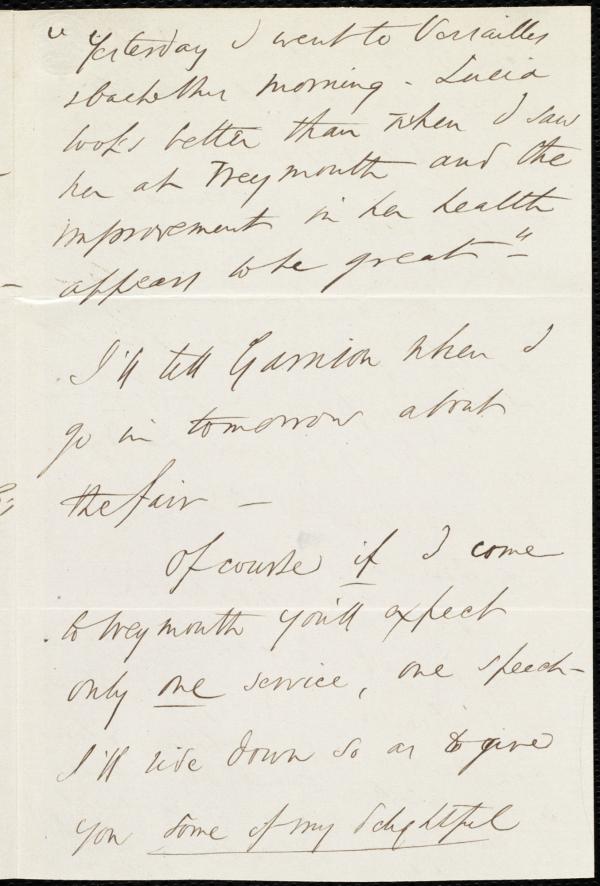 " Yesterday I went to Versailles
& back this morning - Lucia
looks better than when I saw
her at Weymouth and the
improvement in her health
appears to be great -"
I'll tell Garrison when I
go in tomorrow about
the fair -
Of course if I come
to Weymouth you'll expect
only one service, one speech -
I'll ride down so as to give
you some of my delightful